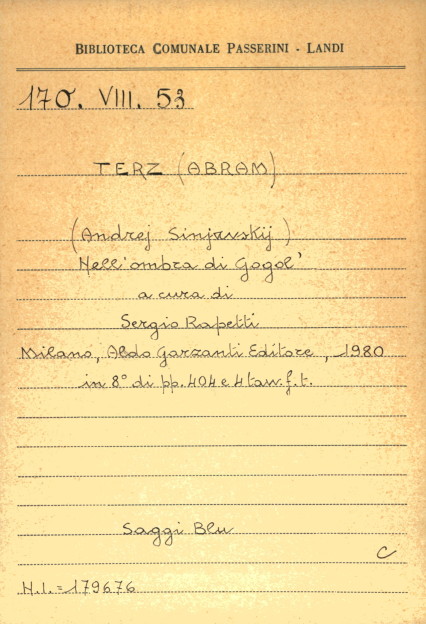 BIBLIOTECA COMUNALE PASSERINI - LANDI
170. VIII. 53
TERZ (ABRAM)
(Andrej Sinjavskij)
Nell'ombra di Gogol'
a cura di
Sergio Rapetti
Milano, Aldo Garzanti Editore, 1980
in 8° di pp. 404 e 4 tav. f. t.
Saggi Blu
C
N.I. = 179676